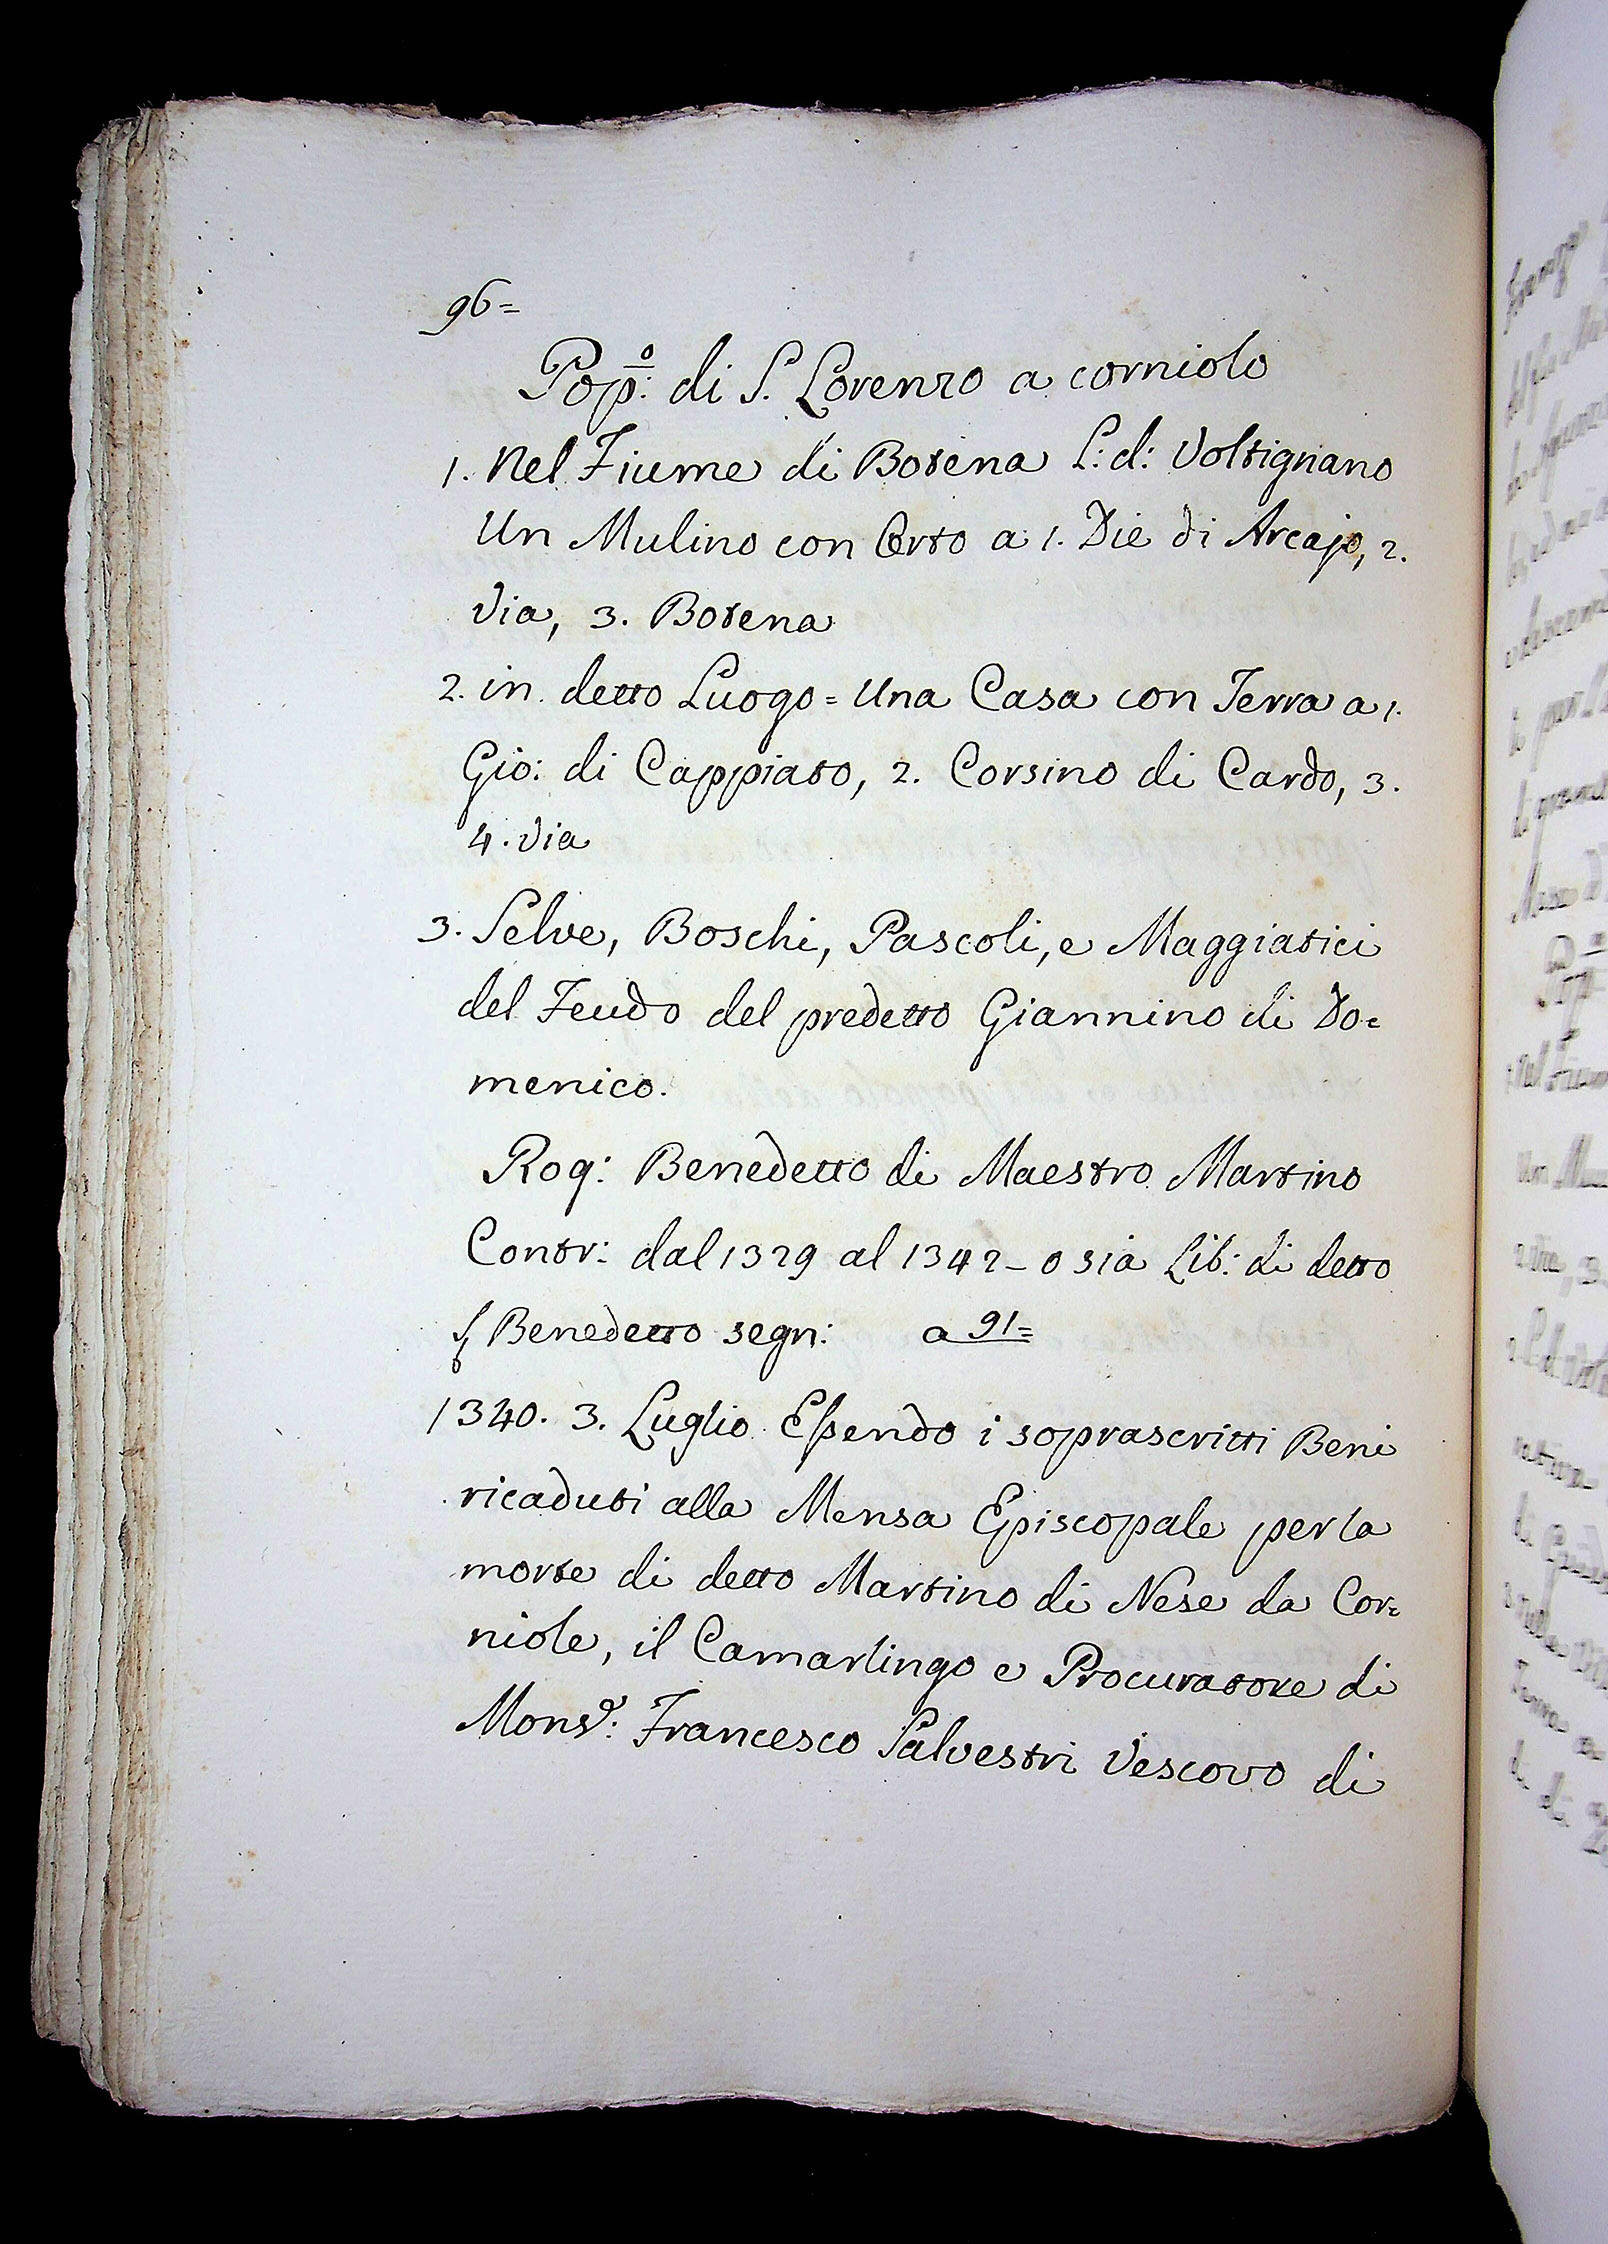 96=
Pop:º di S. Lorenzo a corniolo
1. Nel Fiume di Botena L: d: Voltignano
Un Mulino con Orto a 1. Die di Arcajo, 2.
Via, 3. Botena
2. in detto Luogo = Una Casa con Terra a 1.
Gio: di Cappiato, 2. Corsino di Cardo, 3.
4. Via
3. Selve, Boschi, Pascoli, e Maggiatici
del Feudo del predetto Giannino di Do=
menico.
Rog: Benedetto di Maestro Martino
Contr: dal 1329 al 1342 - o sia Lib: di detto
S Benedetto segn: a 91=
1340. 3. Luglio Essendo i soprascritti Beni
ricaduti alla Mensa Episcopale per la
morte di detto Martino di Nese da Cor=
niole, il Camarlingo e Procuratore di
Monsr: Francesco Salvestri Vescovo di